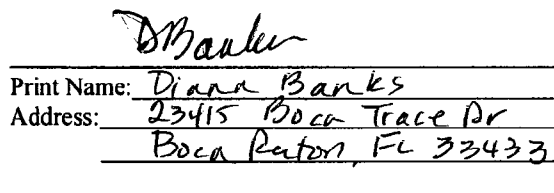 DBanks
Print Name: Diana Banks
Address: 23415 Boca Trace Dr
Boca Raton, FL 33433